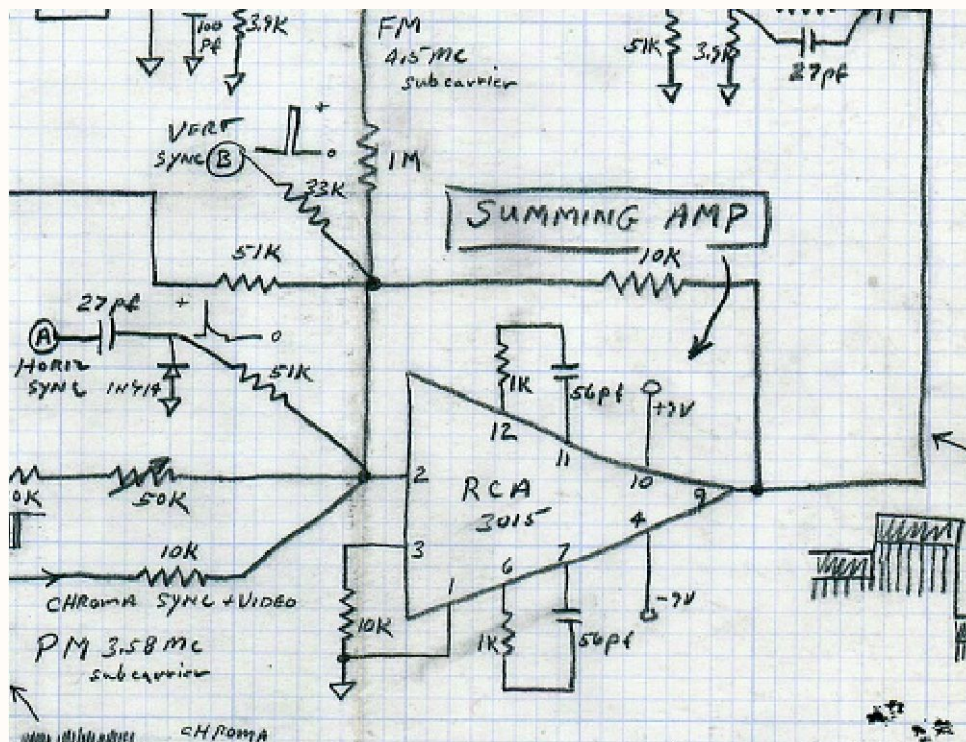 100
pf
3.9K
FM
4.5 MC
subcarrier
51K
3.9K
27pf
VERT
SYNC
B
+
0
33K
1M
SUMMING AMP
10K
51K
27pf
+
0
A
HORIZ
SYNC
1N914
51K
1K
56pf
+9V
12
11
10
9
2
RCA
3015
4
50K
0K
3
6
7
1
10K
CHROMA SYNC + VIDEO
10K
1K
56pf
-9V
PM 3.58 MC
subcarrier
CHROMA